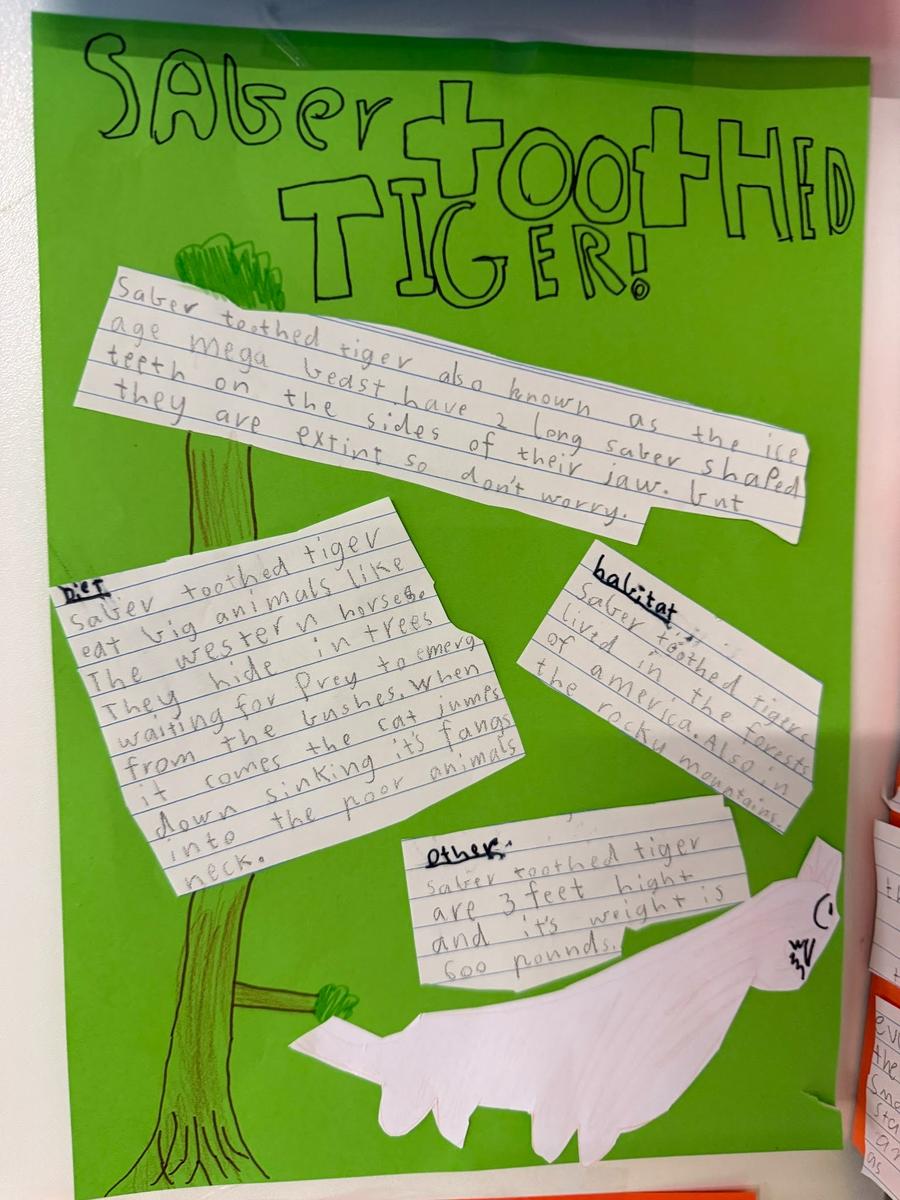 SAber tootHED
TIGER!
Saber toothed tiger also known as the ice
age mega beast have 2 long saber shaped
teeth on the sides of their jaw. but
they are extint so don't worry.
Diet
Saber toothed tiger
eat big animals like
The western horse.
They hide in trees
waiting for prey to emerg
from the bushes. When
it comes the cat jumps
down sinking it's fangs
into the poor animals
neck.
habitat
Saber toothed tigers
lived in the forests
of america. Also in
the rocky mountains.
other.
Saber toothed tiger
are 3 feet hight
and it's weight is
600 pounds.